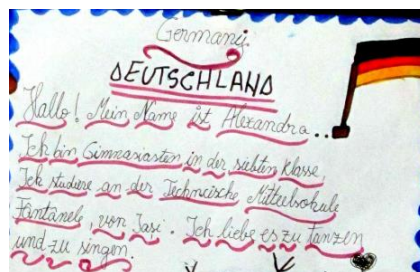 Germany
DEUTSCHLAND
Hallo! Mein Name ist Alexandra...
Ich bin Gimnasiasten in der siebten Klasse,
Ich studiere an der Technciische Mittelschule
Fântânele, von Jasi. Ich liebe es zu tanzen
und zu singen.